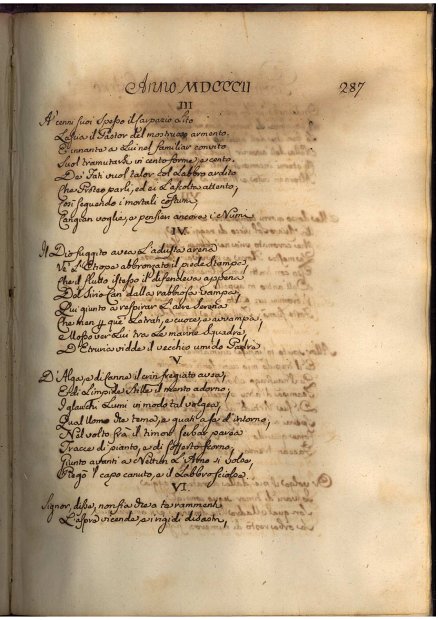 Anno MDCCCII
287
III
A' cenni suoi spesso il carpazio lito
Lascia il Pastor del mostruoso armento.
E innante a Lui nel familiar convito
Suol tramutarsi in cento forme, e cento.
De' Fati vuol talor col Labbro ardito
Che Proteo parli, ed ei L'ascolta attento,
Così seguendo i mortali costumi
Cangian voglie, e pensieri ancora i Numi.
IV.
Il Dio fuggito avea L'adusta arena
Ve' L'Etiope abbronzato il piede stampa,
Che il flutto istesso il difendeva appena
Del Sirio Can dalla rabbiosa vampa,
Qui giunto a respirar L'aere serena
Che men y que' Lidi, e cuoce, e avvampa,
Mosso ver Lui tra Le marine squadre
D'Etruria vidde il vecchio umido Padre
V
D'Alga, e di canna il crin fregiato avea,
E di Limpide stille il mento adorno,
I glauchi Lumi in modo tal volgea,
Qual Uomo che tema, e guati a se d'intorno,
Nel volto fra il timor serbar parea
Tracce di pianto, e di sofferto scorno,
Giunto avanti a Nettun L'Arno si volse,
Piegò il capo canuto, e il Labbro sciolse.
VI
Signor, disse, non fia che a te rammenti
L'aspre vicende, e i rigidi disastri,